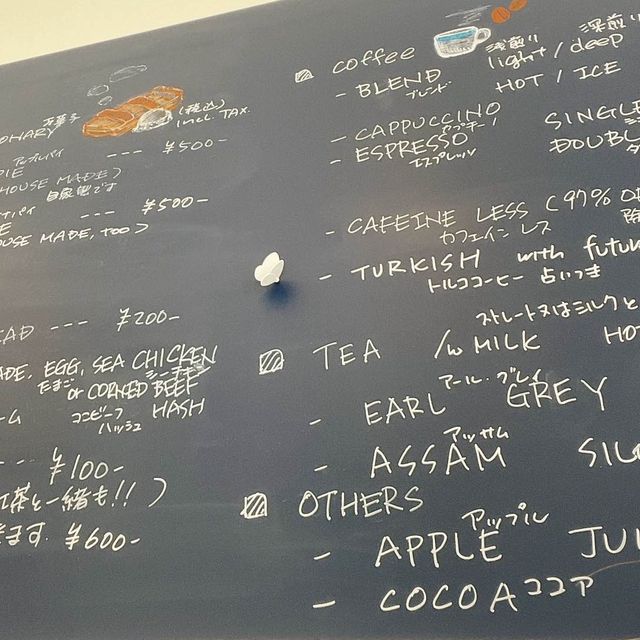 洋菓子
(税込)
incl. TAX.
アップルパイ
PIE --- ¥500-
HOUSE MADE)
自家製です
パイ
--- ¥500-
HOUSE MADE, TOO)
--- ¥200-
ADE, EGG, SEA CHICKEN
たまご シーチキン
or CORNED BEEF
コンビーフ HASH
ハッシュ
--- ¥100-
紅茶と一緒も!!)
きます. ¥600-
coffee
浅煎り 深煎り
light / deep
- BLEND HOT / ICE
ブレンド
- CAPPUCCINO
カプチーノ
- ESPRESSO
エスプレッソ
SINGL
DOUBL
- CAFEINE LESS (97%
カフェイン レス
- TURKISH with futur
トルココーヒー 占いつき
ストレート又はミルクと
TEA /w MILK HO
アール・グレイ
- EARL GREY
アッサム
- ASSAM
OTHERS
アップル
- APPLE JU
- COCOA ココア